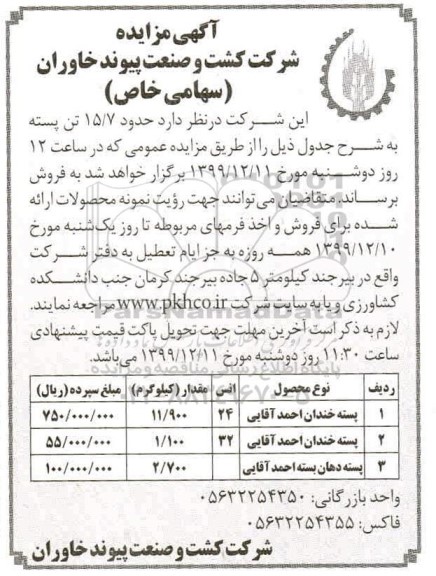 آگهی مزایده
شرکت کشت و صنعت پیوند خاوران
(سهامی خاص)
این شرکت درنظر دارد حدود ۱۵/۷ تن پسته
به شرح جدول ذیل را از طریق مزایده عمومی که در ساعت ۱۲
روز دوشنبه مورخ ۱۳۹۹/۱۲/۱۱ برگزار خواهد شد به فروش
برساند. متقاضیان می‌توانند جهت رؤیت نمونه محصولات ارائه
شده برای فروش و اخذ فرمهای مربوطه تا روز یک‌شنبه مورخ
۱۳۹۹/۱۲/۱۰ همه روزه به جز ایام تعطیل به دفتر شرکت
واقع در بیرجند کیلومتر ۵ جاده بیرجند کرمان جنب دانشکده
کشاورزی و یا به سایت شرکت www.pkhco.ir مراجعه نمایند.
لازم به ذکر است آخرین مهلت جهت تحویل پاکت قیمت پیشنهادی
ساعت ۱۱:۳۰ روز دوشنبه مورخ ۱۳۹۹/۱۲/۱۱ می‌باشد.
ردیف نوع محصول انس مقدار (کیلوگرم) مبلغ سپرده (ریال)
۱ پسته خندان احمد آقایی ۲۴ ۱۱/۹۰۰ ۷۵۰/۰۰۰/۰۰۰
۲ پسته خندان احمد آقایی ۳۲ ۱/۱۰۰ ۵۵/۰۰۰/۰۰۰
۳ پسته دهان بسته احمد آقایی ۲/۷۰۰ ۱۰۰/۰۰۰/۰۰۰
واحد بازرگانی: ۰۵۶۳۲۲۵۴۳۵۰
فاکس: ۰۵۶۳۲۲۵۴۳۵۵
شرکت کشت و صنعت پیوند خاوران